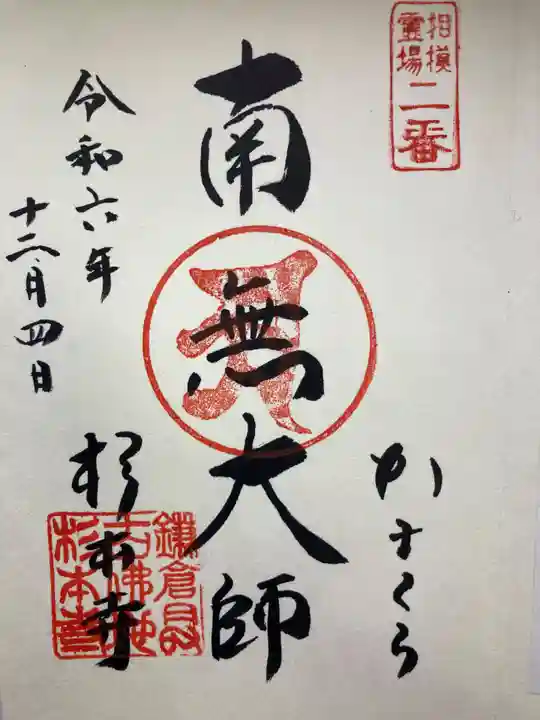 相模
霊場
二番
かまくら
南無大師
令和六年
十二月四日
杉本寺
鎌倉最
古佛地
杉本寺